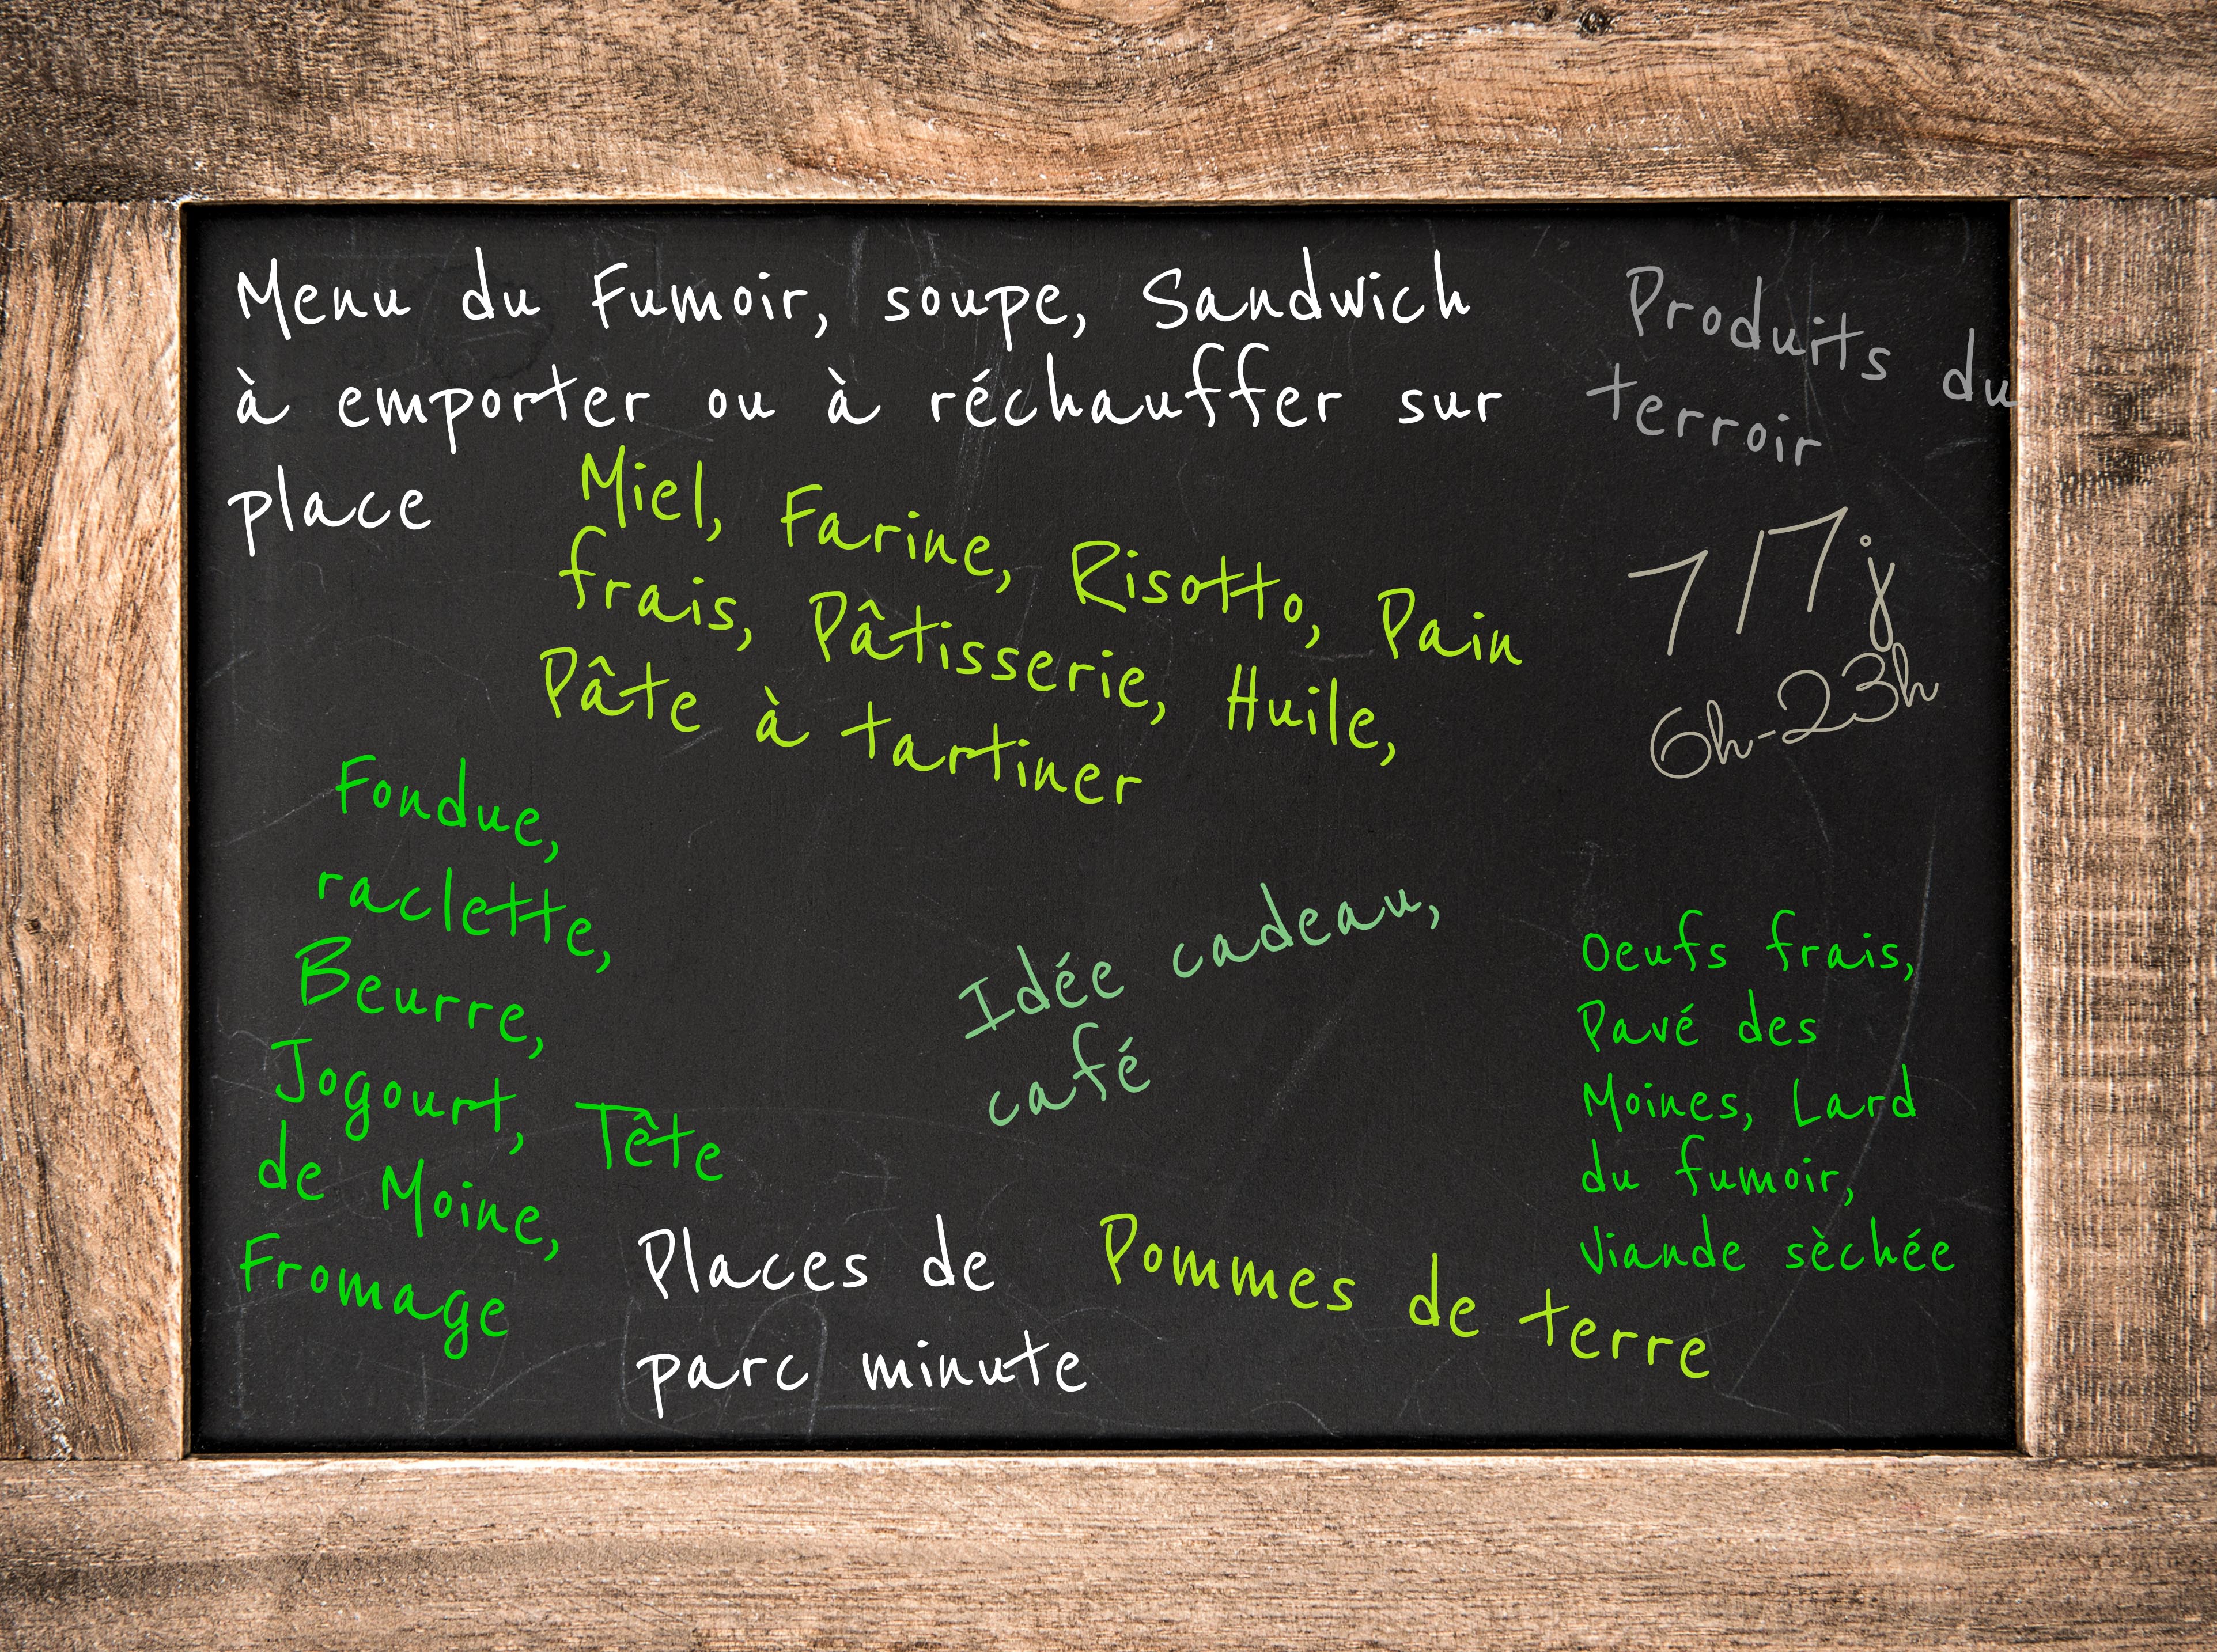 Menu du Fumoir, soupe, Sandwich
à emporter ou à réchauffer sur
place
Produits du
terroir
7/7j
6h-23h
Miel, Farine, Risotto, Pain
frais, Pâtisserie, Huile,
Pâte à tartiner
Fondue,
raclette,
Beurre,
Jogourt, Tête
de Moine,
Fromage
Idée cadeau,
café
Oeufs frais,
Pavé des
Moines, Lard
du fumoir,
Viande sèchée
Places de
parc minute
Pommes de terre